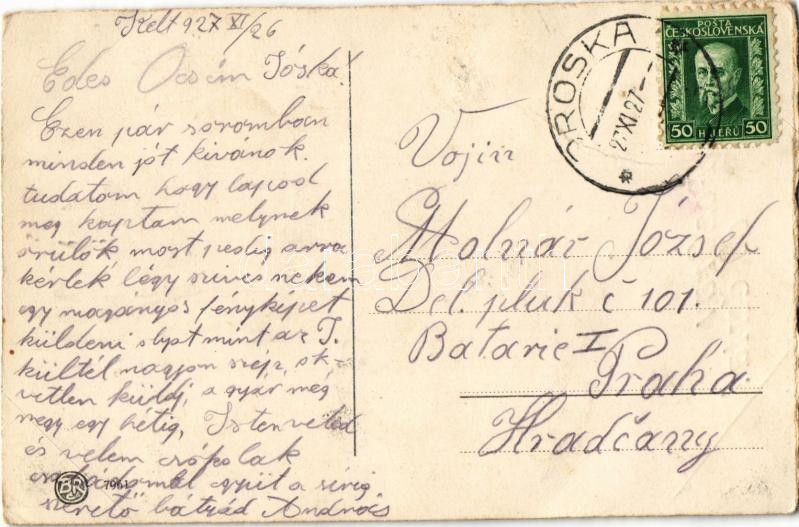 Kelt 927 XI/26
Edes Öcsém Jóska.
Ezen pár soromban
minden jót kivánok.
tudatom hogy lapod
meg kaptam melynek
örülök most pedig arra
kérlek légy szives nekem
egy magányos fényképet
küldeni olyat mint az I.
kültél nagyon szép, ok-
vetlen küldj, a gyár még
megy egy hétig, Istenveled
és velem csókolak
családomal együt a sirig
szerető bátyád András
BRJ
7961
OROSKA
27.XI.27
POSTA
ČESKOSLOVENSKÁ
50 HALERU 50
Vojin
Molnár József
Del. pluk č 101.
Batarie I
Praha
Hradčany